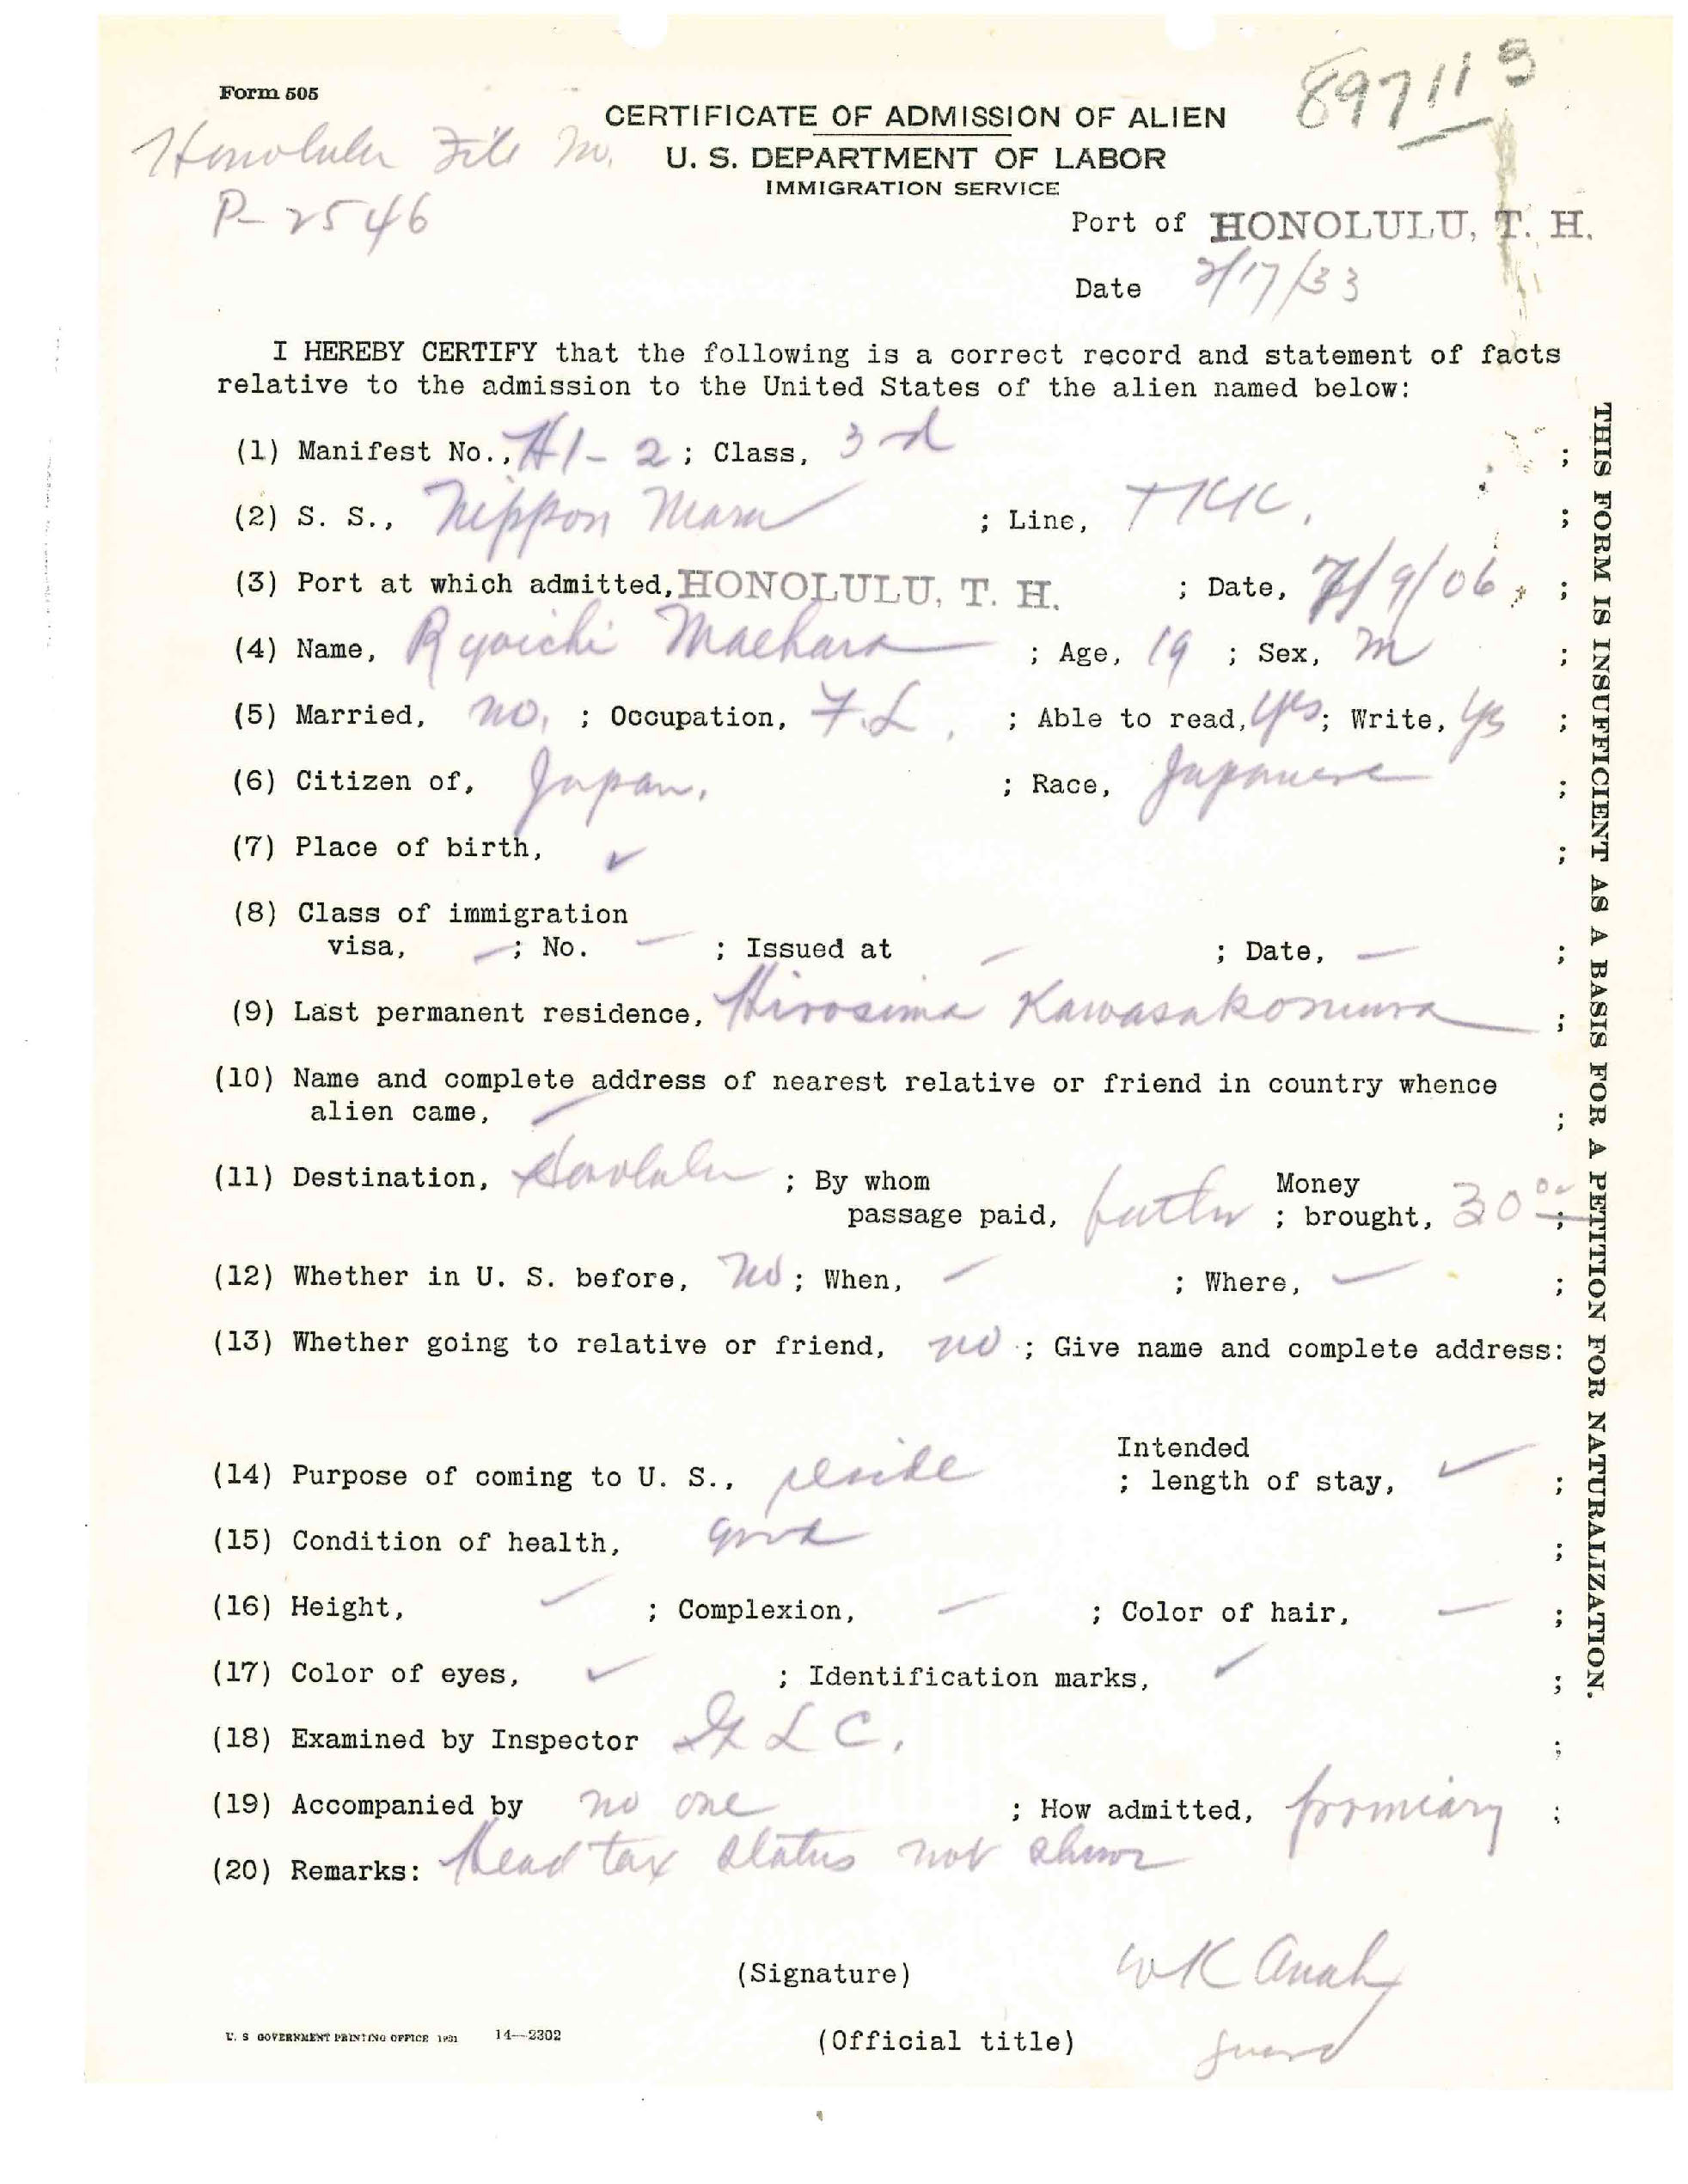 Form 505
897113
CERTIFICATE OF ADMISSION OF ALIEN
Honolulu File No.
U. S. DEPARTMENT OF LABOR
IMMIGRATION SERVICE
P-2546
Port of HONOLULU, T. H.
Date 2/17/33
I HEREBY CERTIFY that the following is a correct record and statement of facts
relative to the admission to the United States of the alien named below:
(1) Manifest No., H1-2 ; Class, 3rd ;
(2) S. S., Nippon Maru ; Line, TKK. ;
(3) Port at which admitted, HONOLULU, T. H. ; Date, 7/9/06 ;
(4) Name, Ryoichi Maehara ; Age, 19 ; Sex, m ;
(5) Married, no, ; Occupation, F.L. ; Able to read, yes; Write, yes ;
(6) Citizen of, Japan. ; Race, Japanese ;
(7) Place of birth, ✓ ;
(8) Class of immigration
visa, —; No. — ; Issued at — ; Date, — ;
(9) Last permanent residence, Hirosima Kawasakomura ;
(10) Name and complete address of nearest relative or friend in country whence
alien came, — ;
(11) Destination, Honolulu ; By whom Money
passage paid, father ; brought, 30 00 ;
(12) Whether in U. S. before, no ; When, — ; Where, — ;
(13) Whether going to relative or friend, no ; Give name and complete address:
Intended
(14) Purpose of coming to U. S., reside ; length of stay, ✓ ;
(15) Condition of health, good ;
(16) Height, — ; Complexion, — ; Color of hair, — ;
(17) Color of eyes, ✓ ; Identification marks, ✓ ;
(18) Examined by Inspector L C. ;
(19) Accompanied by no one ; How admitted, ;
(20) Remarks: Head tax status not shown
(Signature) WK
U. S GOVERNMENT PRINTING OFFICE 1931 14—2302
(Official title) Guard
THIS FORM IS INSUFFICIENT AS A BASIS FOR A PETITION FOR NATURALIZATION.